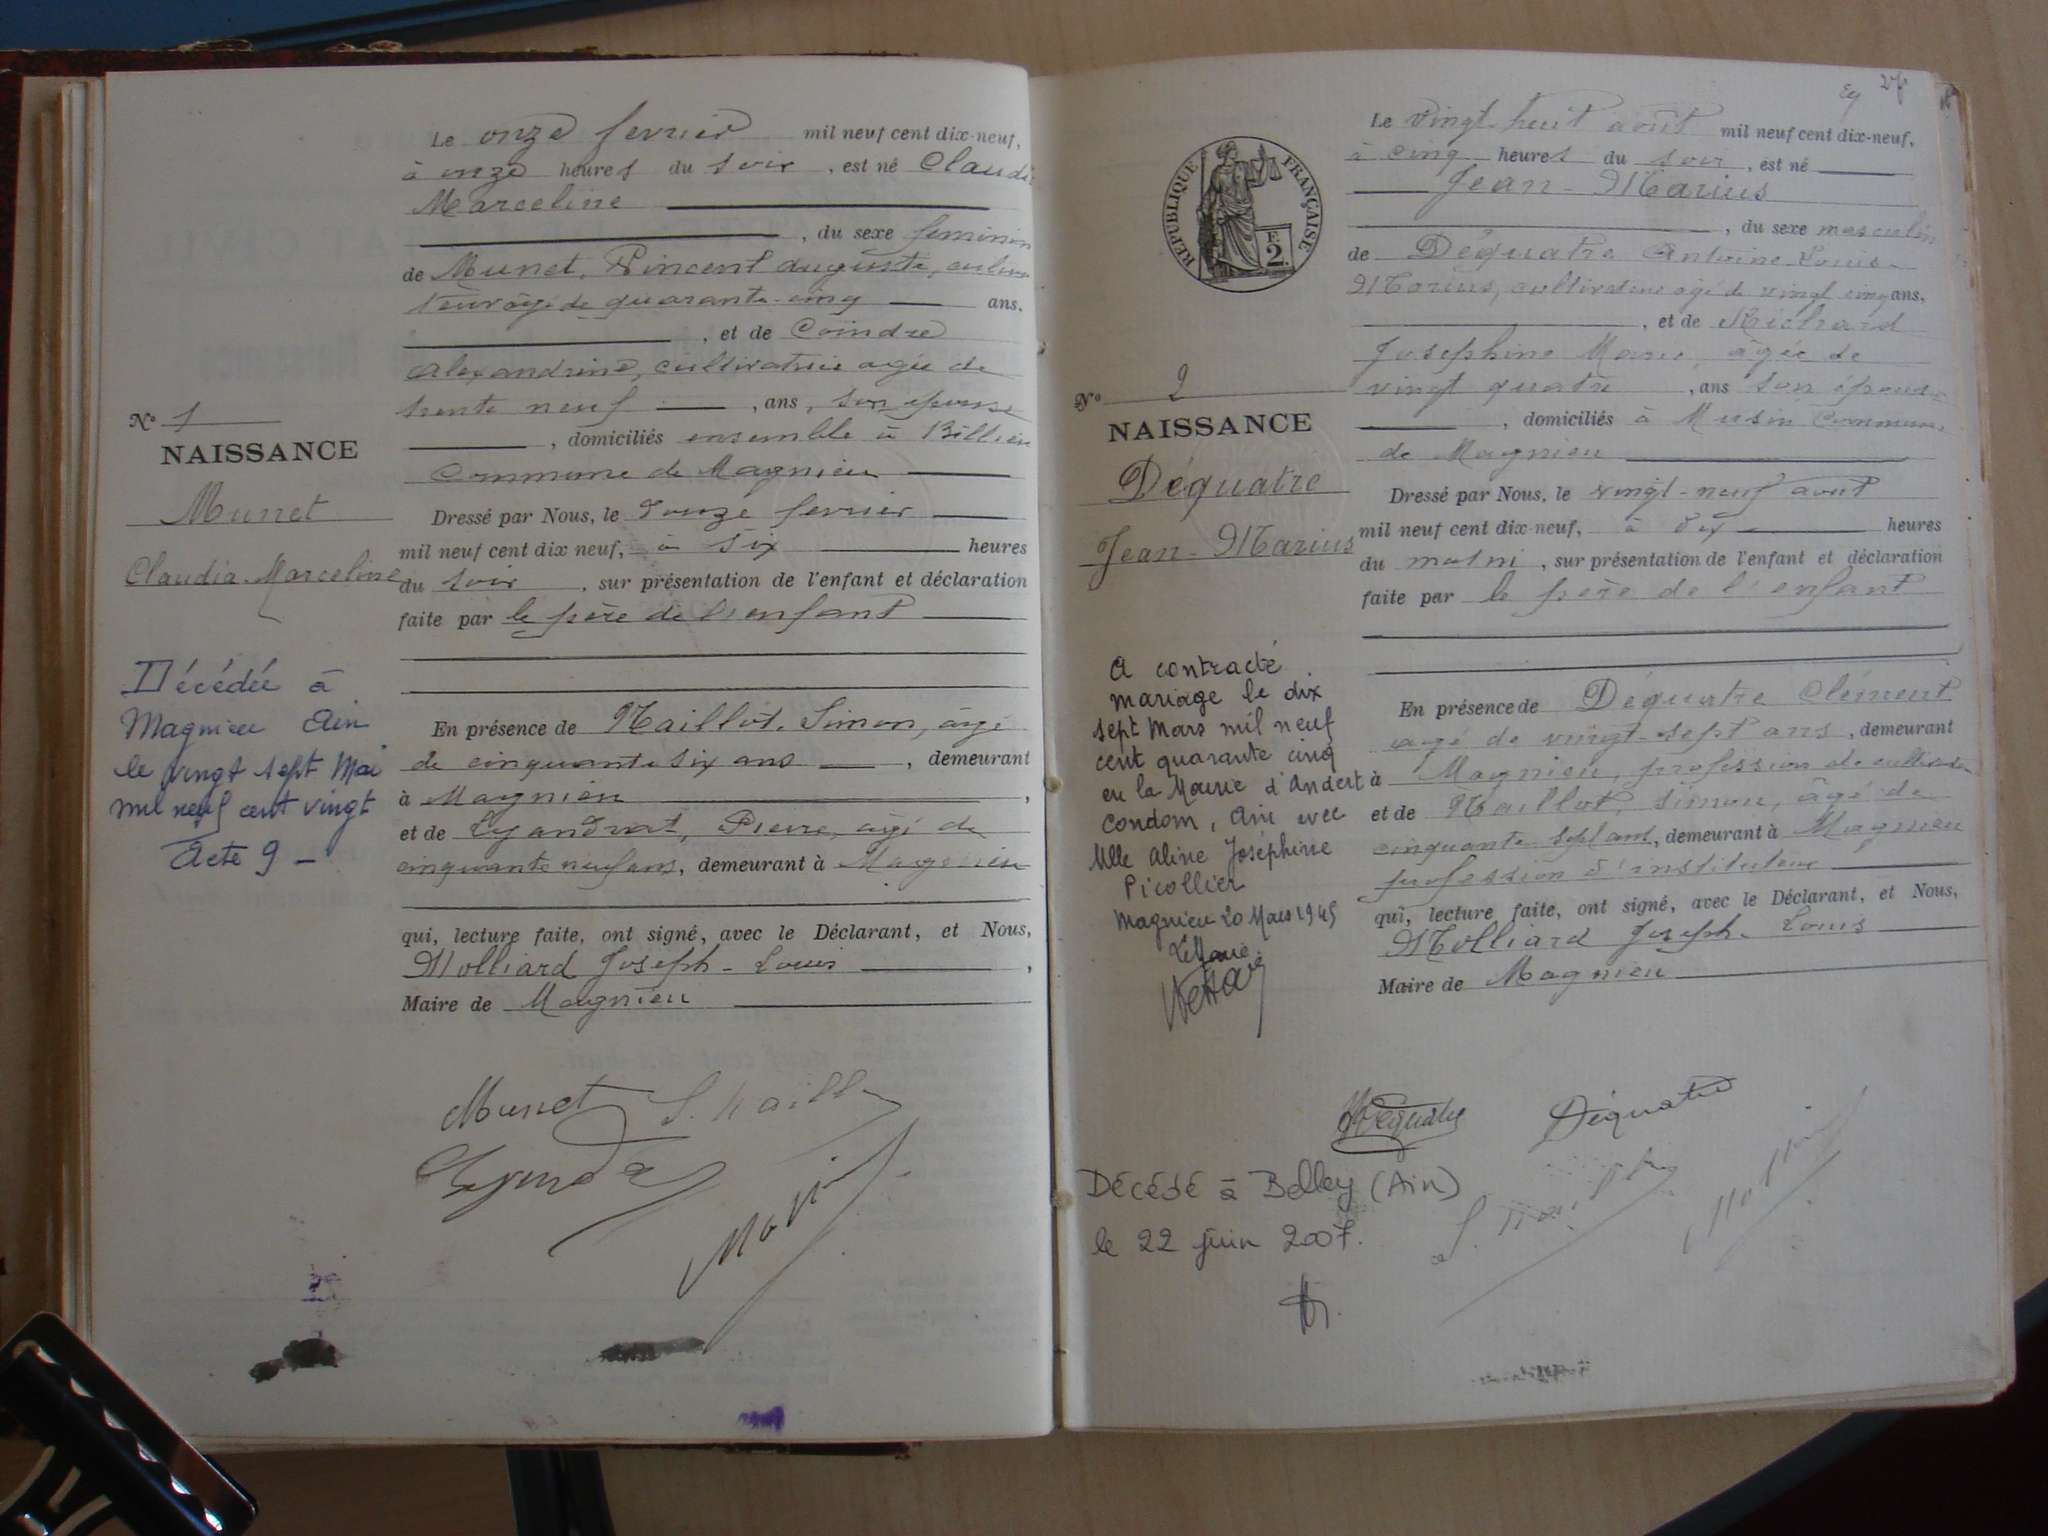 Le onze fevrier mil neuf cent dix-neuf,
à onze heures du soir, est né Claudia
Marceline
, du sexe feminin
de Munet, Vincent Auguste, culiva
teur âgé de quarante-cinq ans.
, et de Coindre
Alexandrine, cultivatrice agée de
trente neuf, ans, son épouse
, domiciliés ensemble à Billieu
Commune de Magnieu
Nº 1
NAISSANCE
Munet
Claudia Marceline
Dressé par Nous, le douze fevrier
mil neuf cent dix neuf, à six heures
du soir, sur présentation de l'enfant et déclaration
faite par le père de l'enfant
Décédée à
Magnieu Ain
le vingt sept Mai
mil neuf cent vingt
Acte 9 -
En présence de Naillot, Simon, âgé
de cinquante six ans, demeurant
à Magnieu,
et de Pierre, âgé de
cinquante neuf ans, demeurant à Magnieu
qui, lecture faite, ont signé, avec le Déclarant, et Nous,
Molliard Joseph-Louis,
Maire de Magnieu
Munet
27
RÉPUBLIQUE FRANÇAISE
F.
2.
Le vingt-huit août mil neuf cent dix-neuf,
à cinq heures du soir, est né
Jean-Marius
, du sexe masculin
de Déquatre Antoine-Louis-
Marius, cultivateur agé de vingt cinq ans,
, et de Richard
Josephine Marie, âgée de
vingt quatre, ans son épouse
, domiciliés à Musin Commune
de Magnieu
Nº 2
NAISSANCE
Déquatre
Jean-Marius
Dressé par Nous, le vingt-neuf aout
mil neuf cent dix-neuf, à dix heures
du matin, sur présentation de l'enfant et déclaration
faite par le père de l'enfant
A contracté
mariage le dix
sept Mars mil neuf
cent quarante cinq
en la Mairie d'Andert
Condom, Ain avec
Mlle Aline Joséphine
Picollier
Magnieu 20 Mars 1945
Le Maire
En présence de Déquatre Clément
agé de vingt-sept ans, demeurant
à Magnieu, profession de cultivateur
et de Naillot, Simon, âgé de
cinquante sept ans, demeurant à Magnieu
profession d'instituteur
qui, lecture faite, ont signé, avec le Déclarant, et Nous,
Molliard Joseph-Louis
Maire de Magnieu
Déquatre Déquatre
Décédé à Belley (Ain)
le 22 juin 2007.